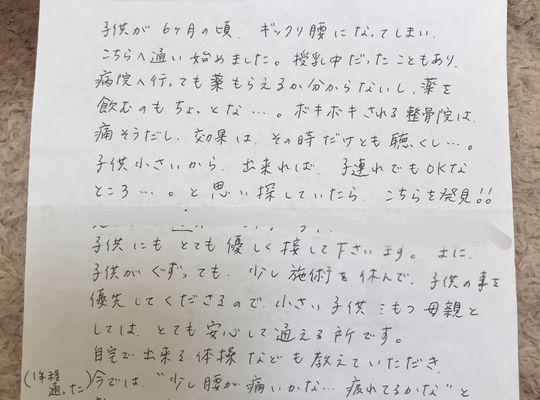 子供が6ヶ月の頃、ギックリ腰になってしまい、
こちらへ通い始めました。授乳中だったこともあり、
病院へ行っても薬もらえるか分からないし、薬を
飲むのもちょっとな…。ボキボキされる整骨院は、
痛そうだし、効果は、その時だけとも聴くし…。
子供小さいから、出来れば、子連れでもOKな
ところ…。と思い探していたら、こちらを発見!!
子供にもとても優しく接して下さいます。また、
子供がぐずっても、少し施術を休んで、子供の事を
優先してくださるので、小さい子供をもつ母親と
しては、とても安心して通える所です。
自宅で出来る体操なども教えていただき、
(1年程通った)今では、"少し腰が痛いかな…疲れてるかな"と